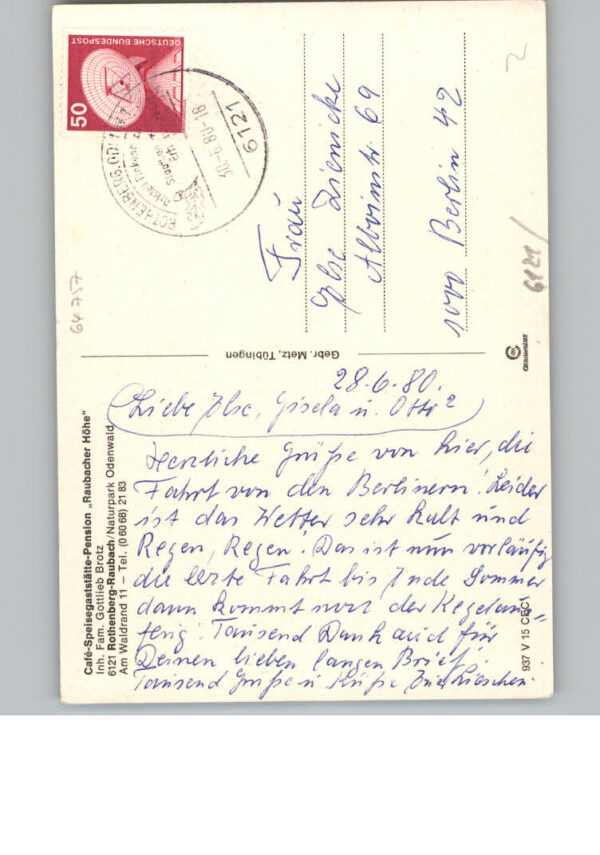 50
DEUTSCHE BUNDESPOST
ROTHENBERG, OD
6121
30.-6.80-18
2
Frau
Ilse Zienicke
Albvinstr 69
1000 Berlin 42
6121/
64757
Gebr. Metz, Tübingen
Café-Speisegaststätte-Pension „Raubacher Höhe"
Inh. Fam. Gottlieb Brotz
6121 Rothenberg-Raubach/Naturpark Odenwald
Am Waldrand 11 – Tel. (0 60 68) 21 83
28.6.80.
Liebe Ilse, Gisela u. Otto
Herzliche Grüße von hier, die
Fahrt von den Berlinern! Leider
ist das Wetter sehr kalt und
Regen, Regen! Das ist nun vorläufig
die letzte Fahrt bis Ende Sommer
dann kommt noch der Kegelaus-
flug! Tausend Dank auch für
Deinen lieben langen Brief!
Tausend Grüße u Küße
937 V 15 CEC